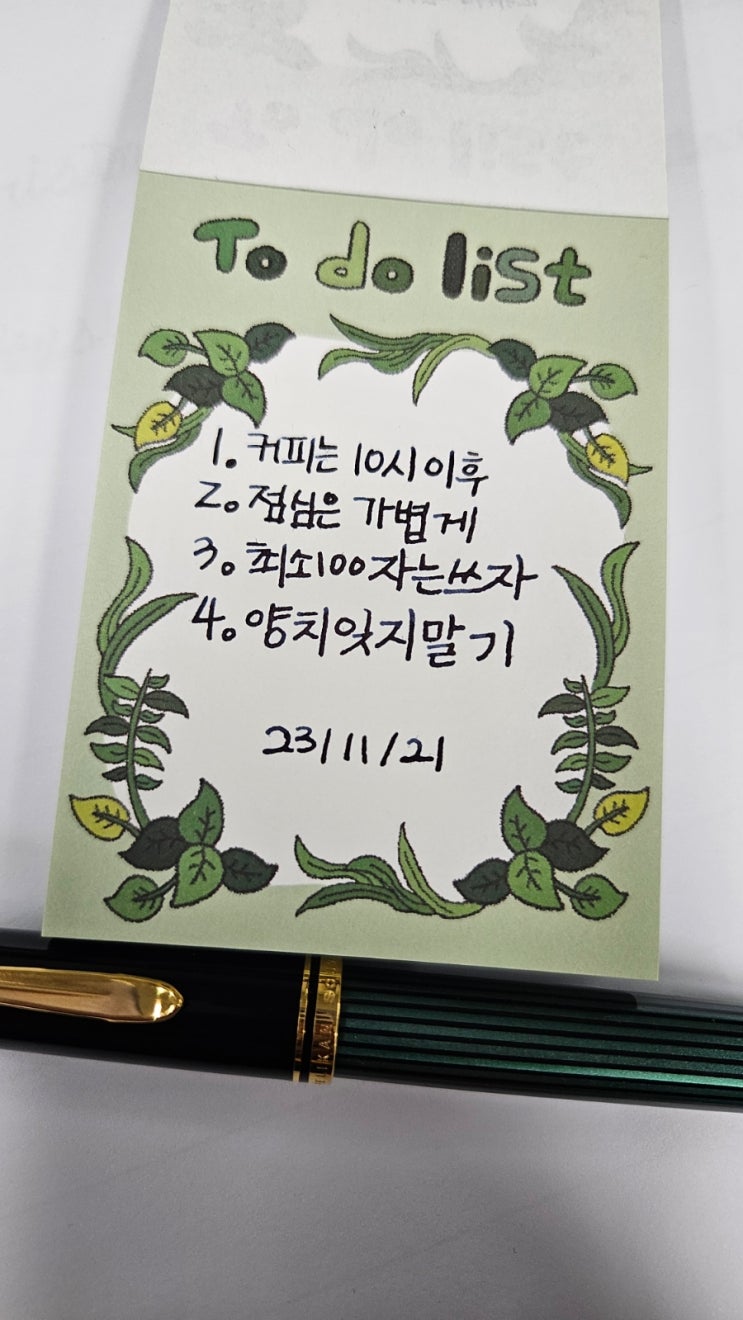 To do list
1. 커피는 10시 이후
2. 점심은 가볍게
3. 최소100자는쓰자
4. 양치잊지말기
23/11/21